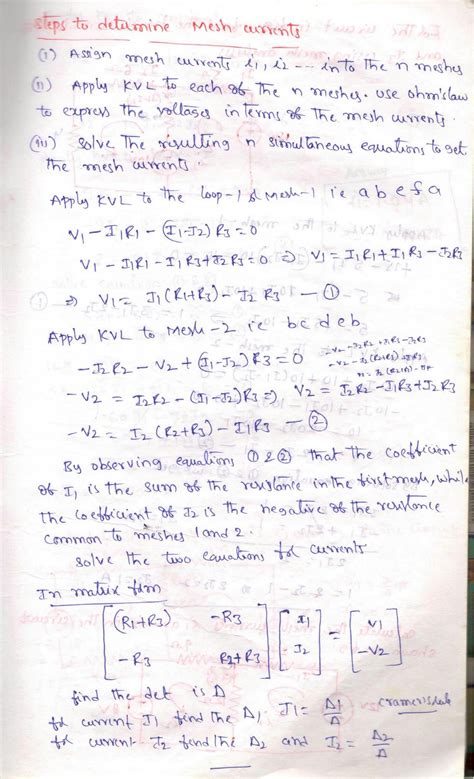 steps to determine Mesh currents
(i) Assign mesh currents i1, i2 --- in to the n meshes
(ii) Apply KVL to each of the n meshes. use ohm's law
to express the voltages in terms of the mesh currents.
(iii) solve the resulting n simultaneous equations to get
the mesh currents.
Apply KVL to the loop-1 & Mesh-1 i.e a b e f a
V1 - I1R1 - (I1-I2) R3 = 0
V1 - I1R1 - I1R3 + I2R3 = 0 ⇒ V1 = I1R1 + I1R3 - I2R3
⇒ V1 = I1 (R1+R3) - I2 R3 — ①
Apply KVL to Mesh-2 i.e bc d e b
- I2R2 - V2 + (I1-I2) R3 = 0
- V2 = I2R2 - (I1-I2) R3 ⇒ V2 = I2R2 - I1R3 + I2R3
- V2 = I2 (R2+R3) - I1R3 ②
By observing equation ① & ② that the coefficient
of I1 is the sum of the resistance in the first mesh, while
the coefficient of I2 is the negative of the resistance
common to meshes 1 and 2.
solve the two equations for currents
In matrix form
[(R1+R3) -R3] [I1] = [V1]
[-R3 R2+R3] [I2] [-V2]
find the det is Δ
for current I1 find the Δ1 I1 = Δ1/Δ (cramer's rule
for current I2 find the Δ2 and I2 = Δ2/Δ